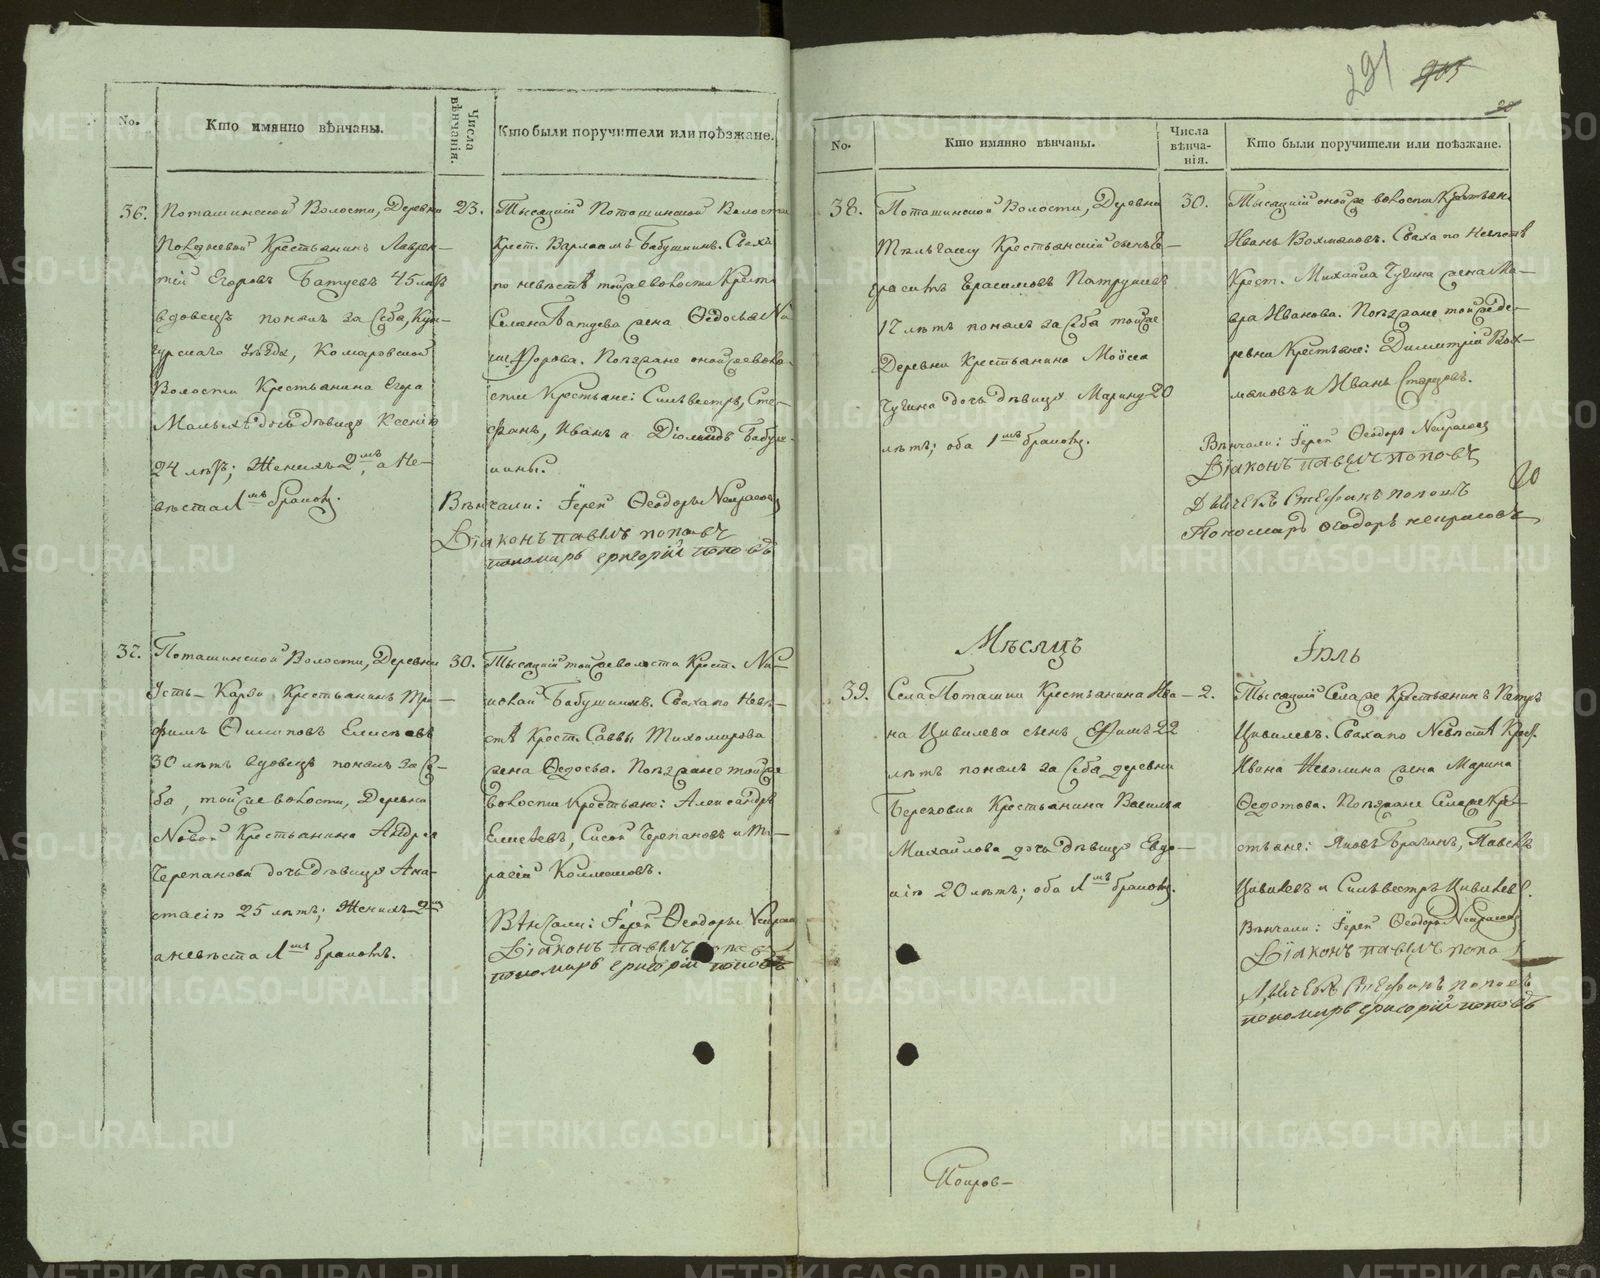 No.
Кто имянно вѣнчаны.
Числа вѣнчанія.
Кто были поручители или поѣзжане.
36.
Поташинской Волости, Деревни
Крестьянинъ Лаврен-
тій Егоровъ Батуевъ 45 лѣтъ
вдовецъ понялъ за себя, Кун-
гурскаго уѣзда, Комаровской
Волости Крестьянина Егора
дочь дѣвицу Ксенію
24 лѣтъ; Женихъ 2мъ, а Не-
вѣста 1мъ бракомъ.
23.
Тысяцкій Поташинской Волости
Крест. Варлаамъ Бабушкинъ. Сваха
по невѣстѣ тойже волости Крест.
Батуева жена Ѳедосья
Поѣзжане онойже воло-
сти Крестьяне: Силвестръ, Сте-
фанъ, Иванъ и Бабуш-
кины.
Вѣнчали: Іерей Ѳеодоръ Некрасовъ
Діаконъ Павелъ Поповъ
пономарь Григорій Поповъ
37.
Поташинской Волости, Деревни
Усть-Карзи Крестьянинъ Тро-
фимъ Филиповъ Елисѣевъ
30 лѣтъ вдовецъ понялъ за се-
бя, тойже волости, Деревни
Новой Крестьянина Андрея
Черепанова дочь дѣвицу Ана-
стасію 25 лѣтъ; Женихъ 2мъ
а невѣста 1мъ бракомъ.
30.
Тысяцкій тойже волости Крест. Ни-
колай Бабушкинъ. Сваха по Невѣ-
стѣ Крест. Саввы Тихомирова
жена Ѳедосья. Поѣзжане тойже
волости Крестьяне: Александръ
Елисѣевъ, Сисой Черепановъ и
Вѣнчали: Іерей Ѳеодоръ Некрасовъ
Діаконъ Павелъ Поповъ
пономарь Григорій Поповъ
291
No.
Кто имянно вѣнчаны.
Числа вѣнча-
нія.
Кто были поручители или поѣзжане.
38.
Поташинской Волости, Деревни
Крестьянскій сынъ Ге-
расимъ Ерасимовъ Патрушевъ
17 лѣтъ понялъ за себя тойже
Деревни Крестьянина Моѵсея
Чугина дочь дѣвицу Марину 20
лѣтъ; оба 1мъ бракомъ.
30.
Тысяцкій онойже волости Крестьян.
Иванъ Вохмяковъ. Сваха по Невѣстѣ
Крест. Михайла Чугина жена Ма-
вра Иванова. Поѣзжане тойже де-
ревни Крестьяне: Димитрій Вох-
мяковъ и Иванъ Старцовъ.
Вѣнчали: Іерей Ѳеодоръ Некрасовъ
Діаконъ Павелъ Поповъ
Дьячекъ Стефанъ Поповъ
Пономарь Ѳеодоръ Некрасовъ
Мѣсяцъ
Іюль
39.
Села Поташки Крестьянина Ива-
на Цивилева сынъ Ефимъ 22
лѣтъ понялъ за себя деревни
Березовки Крестьянина Василья
Михайлова дочь дѣвицу Евдо-
кію 20 лѣтъ; оба 1мъ бракомъ.
2.
Тысяцкій Села же Крестьянинъ Петръ
Цивилевъ. Сваха по Невѣстѣ Крест.
Ивана Неволина жена Марина
Ѳедотова. Поѣзжане Села же Кре-
стьяне: Яковъ Брагинъ, Павелъ
Цивилевъ и Силвестръ Цивилевъ.
Вѣнчали: Іерей Ѳеодоръ Некрасовъ
Діаконъ Павелъ Поповъ
Дьячекъ Стефанъ Поповъ
пономарь Григорій Поповъ
METRIKI.GASO-URAL.RU